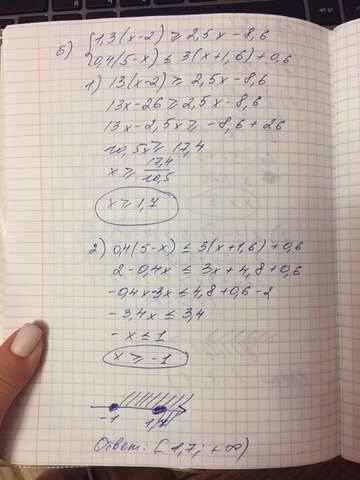 б) { 1,3(x-2) ≥ 2,5x-8,6
0,4(5-x) ≤ 3(x+1,6)+0,6
1) 13(x-2) ≥ 2,5x-8,6
13x-26 ≥ 2,5x-8,6
13x-2,5x ≥ -8,6+26
10,5x ≥ 17,4
x ≥ 17,4/10,5
x ≥ 1,7
2) 0,4(5-x) ≤ 3(x+1,6)+0,6
2-0,4x ≤ 3x+4,8+0,6
-0,4x-3x ≤ 4,8+0,6-2
-3,4x ≤ 3,4
-x ≤ 1
x ≥ -1
-1 1,7
Ответ: [1,7; +∞)